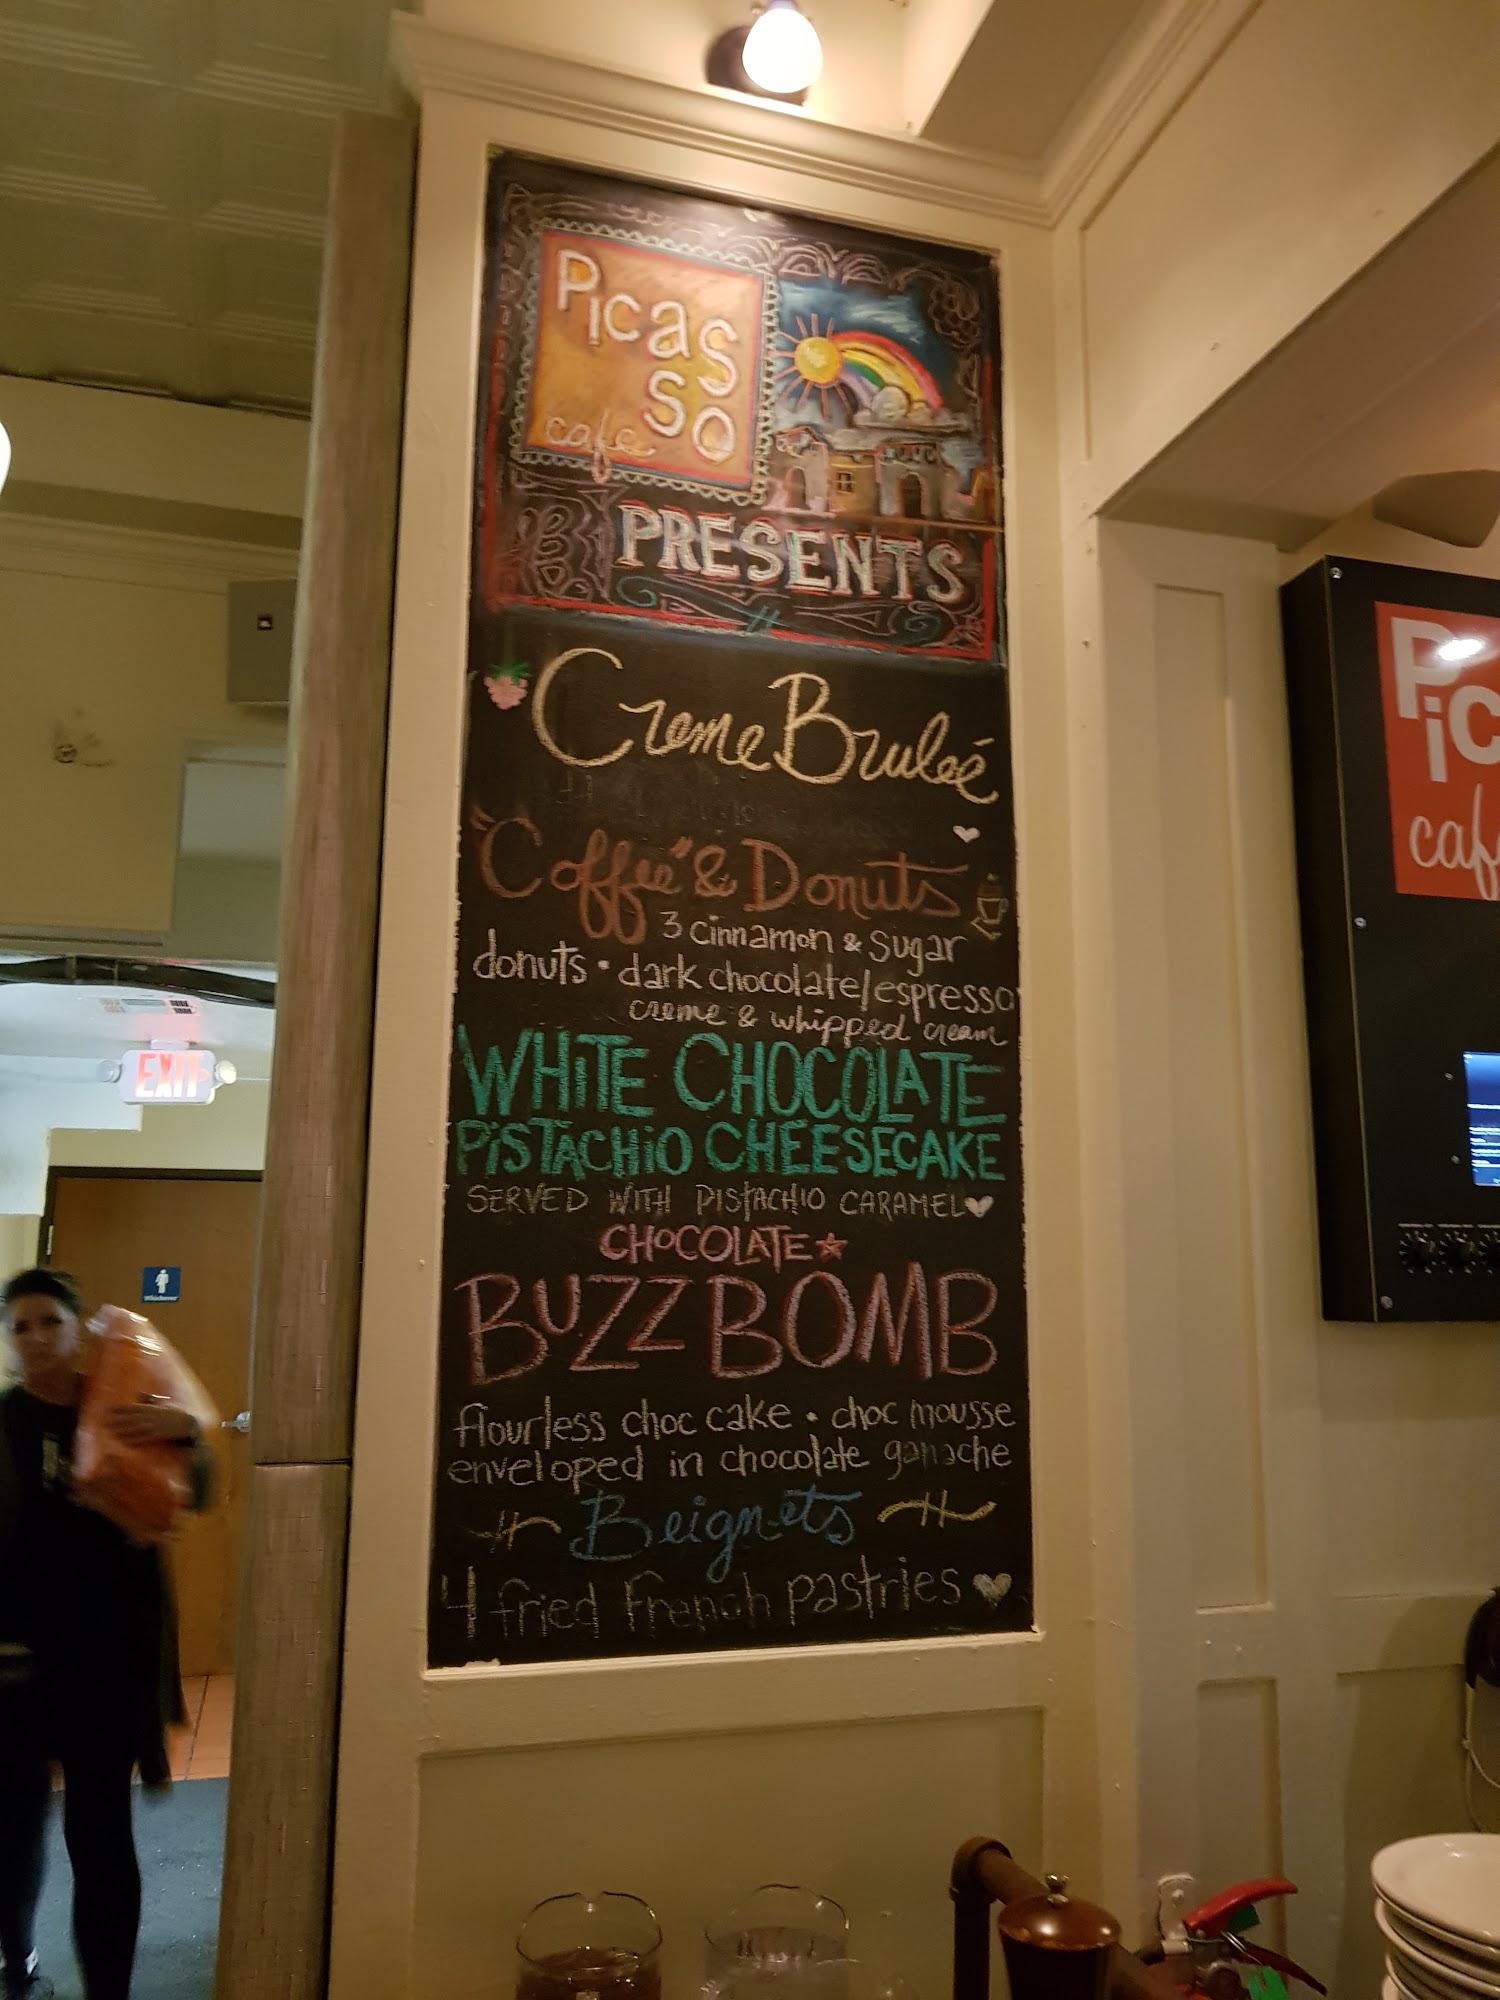 Picasso
cafe
PRESENTS
Creme Bruleé
"Coffee" & Donuts
3 cinnamon & sugar
donuts • dark chocolate/espresso
creme & whipped cream
WHiTE CHOCOLATE
PiSTACHiO CHEESECAKE
SERVED WITH PISTACHIO CARAMEL
CHOCOLATE
BUZZ BOMB
flourless choc cake • choc mousse
enveloped in chocolate ganache
Beignets
4 fried French pastries
EXIT
Whichever
Pic
caf